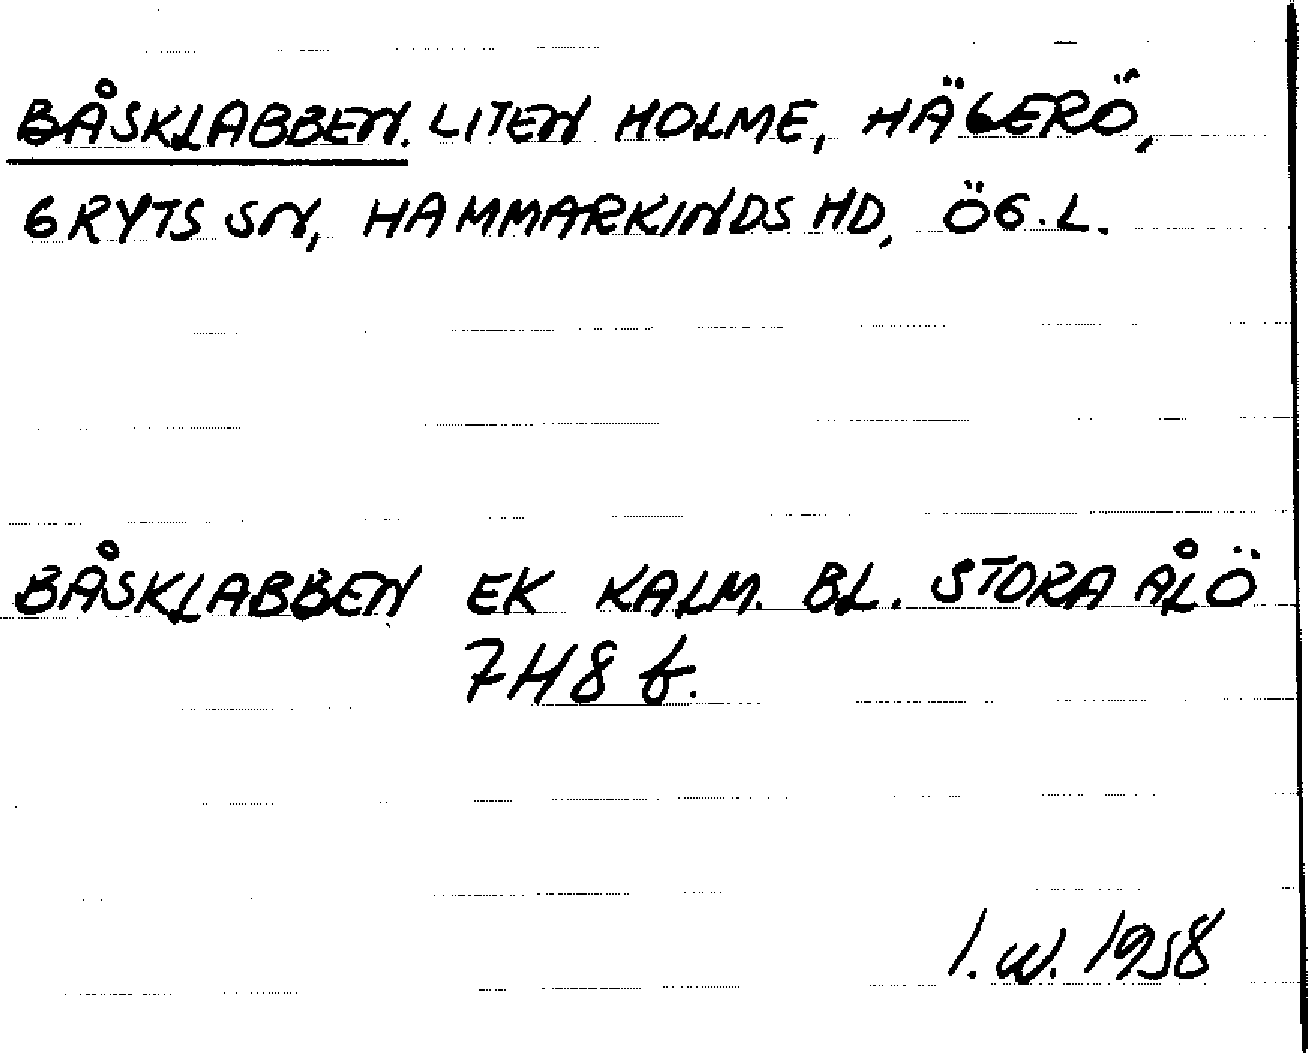 BÅSKLABBEN. LITEN HOLME, HÄGERÖ,
GRYTS SN, HAMMARKINDS HD, ÖG.L.
BÅSKLABBEN EK KALM. BL. STORA ÅLÖ
7H8f.
I.W. 1958